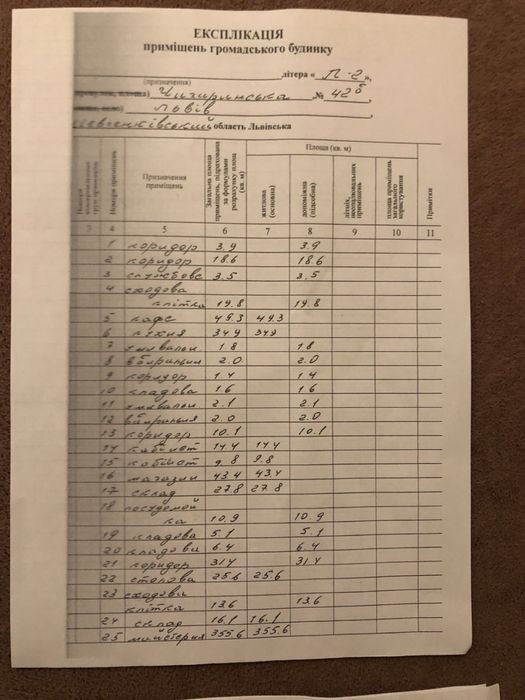 ЕКСПЛІКАЦІЯ
приміщень громадського будинку
літера « Л-2 »,
(призначення)
Чигиринська № 42б,
Львів
Шевченківський область Львівська
Номери приміщень
Призначення приміщень
Загальна площа приміщень, підрахована за формулами розрахунку площ (кв. м)
Площа (кв. м)
житлова (основна)
допоміжна (підсобна)
літніх, неопалювальних приміщень
площа приміщень загального користування
Примітки
3 4 5 6 7 8 9 10 11
1 коридор 3.9 3.9
2 коридор 18.6 18.6
3 службове 3.5 3.5
4 сходова
клітка 19.8 19.8
5 кафе 49.3 49.3
6 кухня 34.9 34.9
7 умивальн 1.8 1.8
8 вбиральня 2.0 2.0
9 коридор 1.4 1.4
10 кладова 1.6 1.6
11 умивальн 2.1 2.1
12 вбиральня 2.0 2.0
13 коридор 10.1 10.1
14 кабінет 14.4 14.4
15 кабінет 9.8 9.8
16 магазин 43.4 43.4
17 склад 27.8 27.8
18 посудомой
ка 10.9 10.9
19 кладова 5.1 5.1
20 кладова 6.4 6.4
21 коридор 31.4 31.4
22 столова 25.6 25.6
23 сходова
клітка 13.6 13.6
24 склад 16.1 16.1
25 майстерня 355.6 355.6